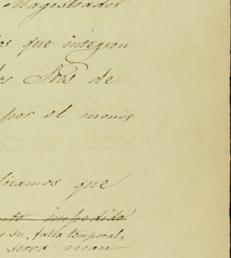 Magistrados
os que integren
los Sres de
por el menos
licamos que
impedido
r su falta temporal,